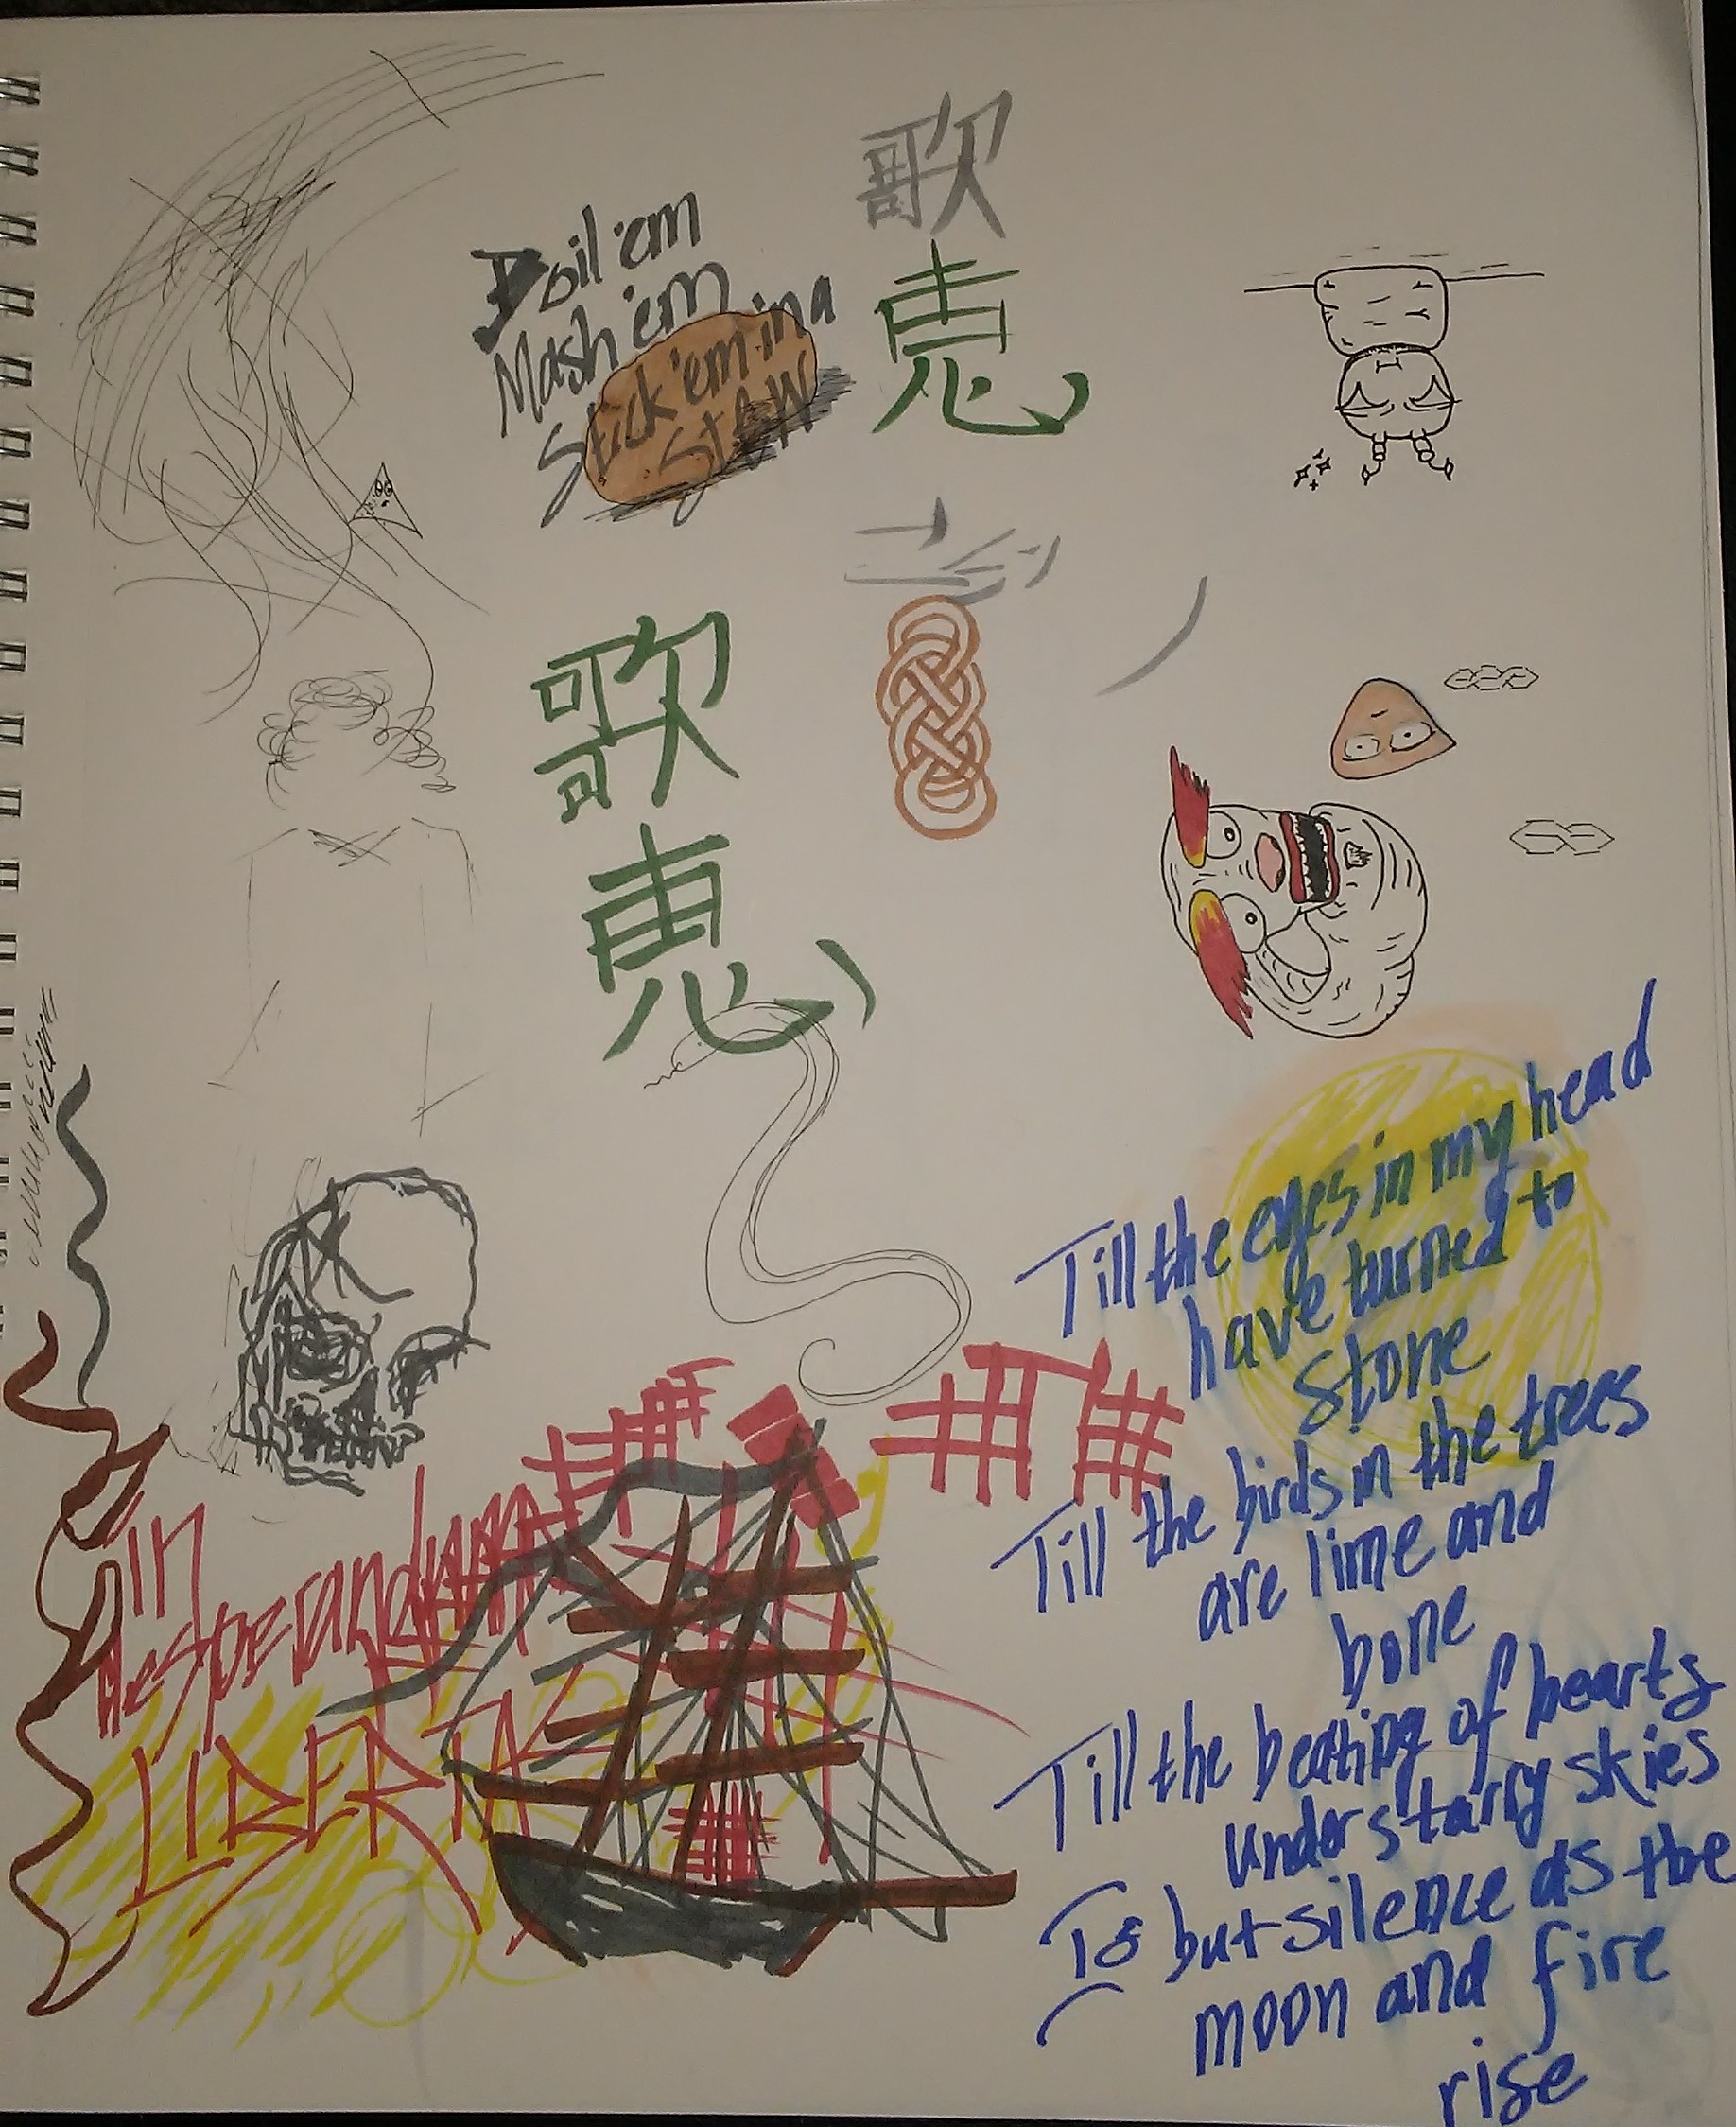 Boil 'em
Mash 'em
Stick 'em in a
stew
歌
恵
歌
恵
Till the eyes in my head
have turned to
stone
Till the birds in the trees
are lime and
bone
Till the beating of hearts
under starry skies
Is but silence as the
moon and fire
rise
in
desperandum
LIBERTA